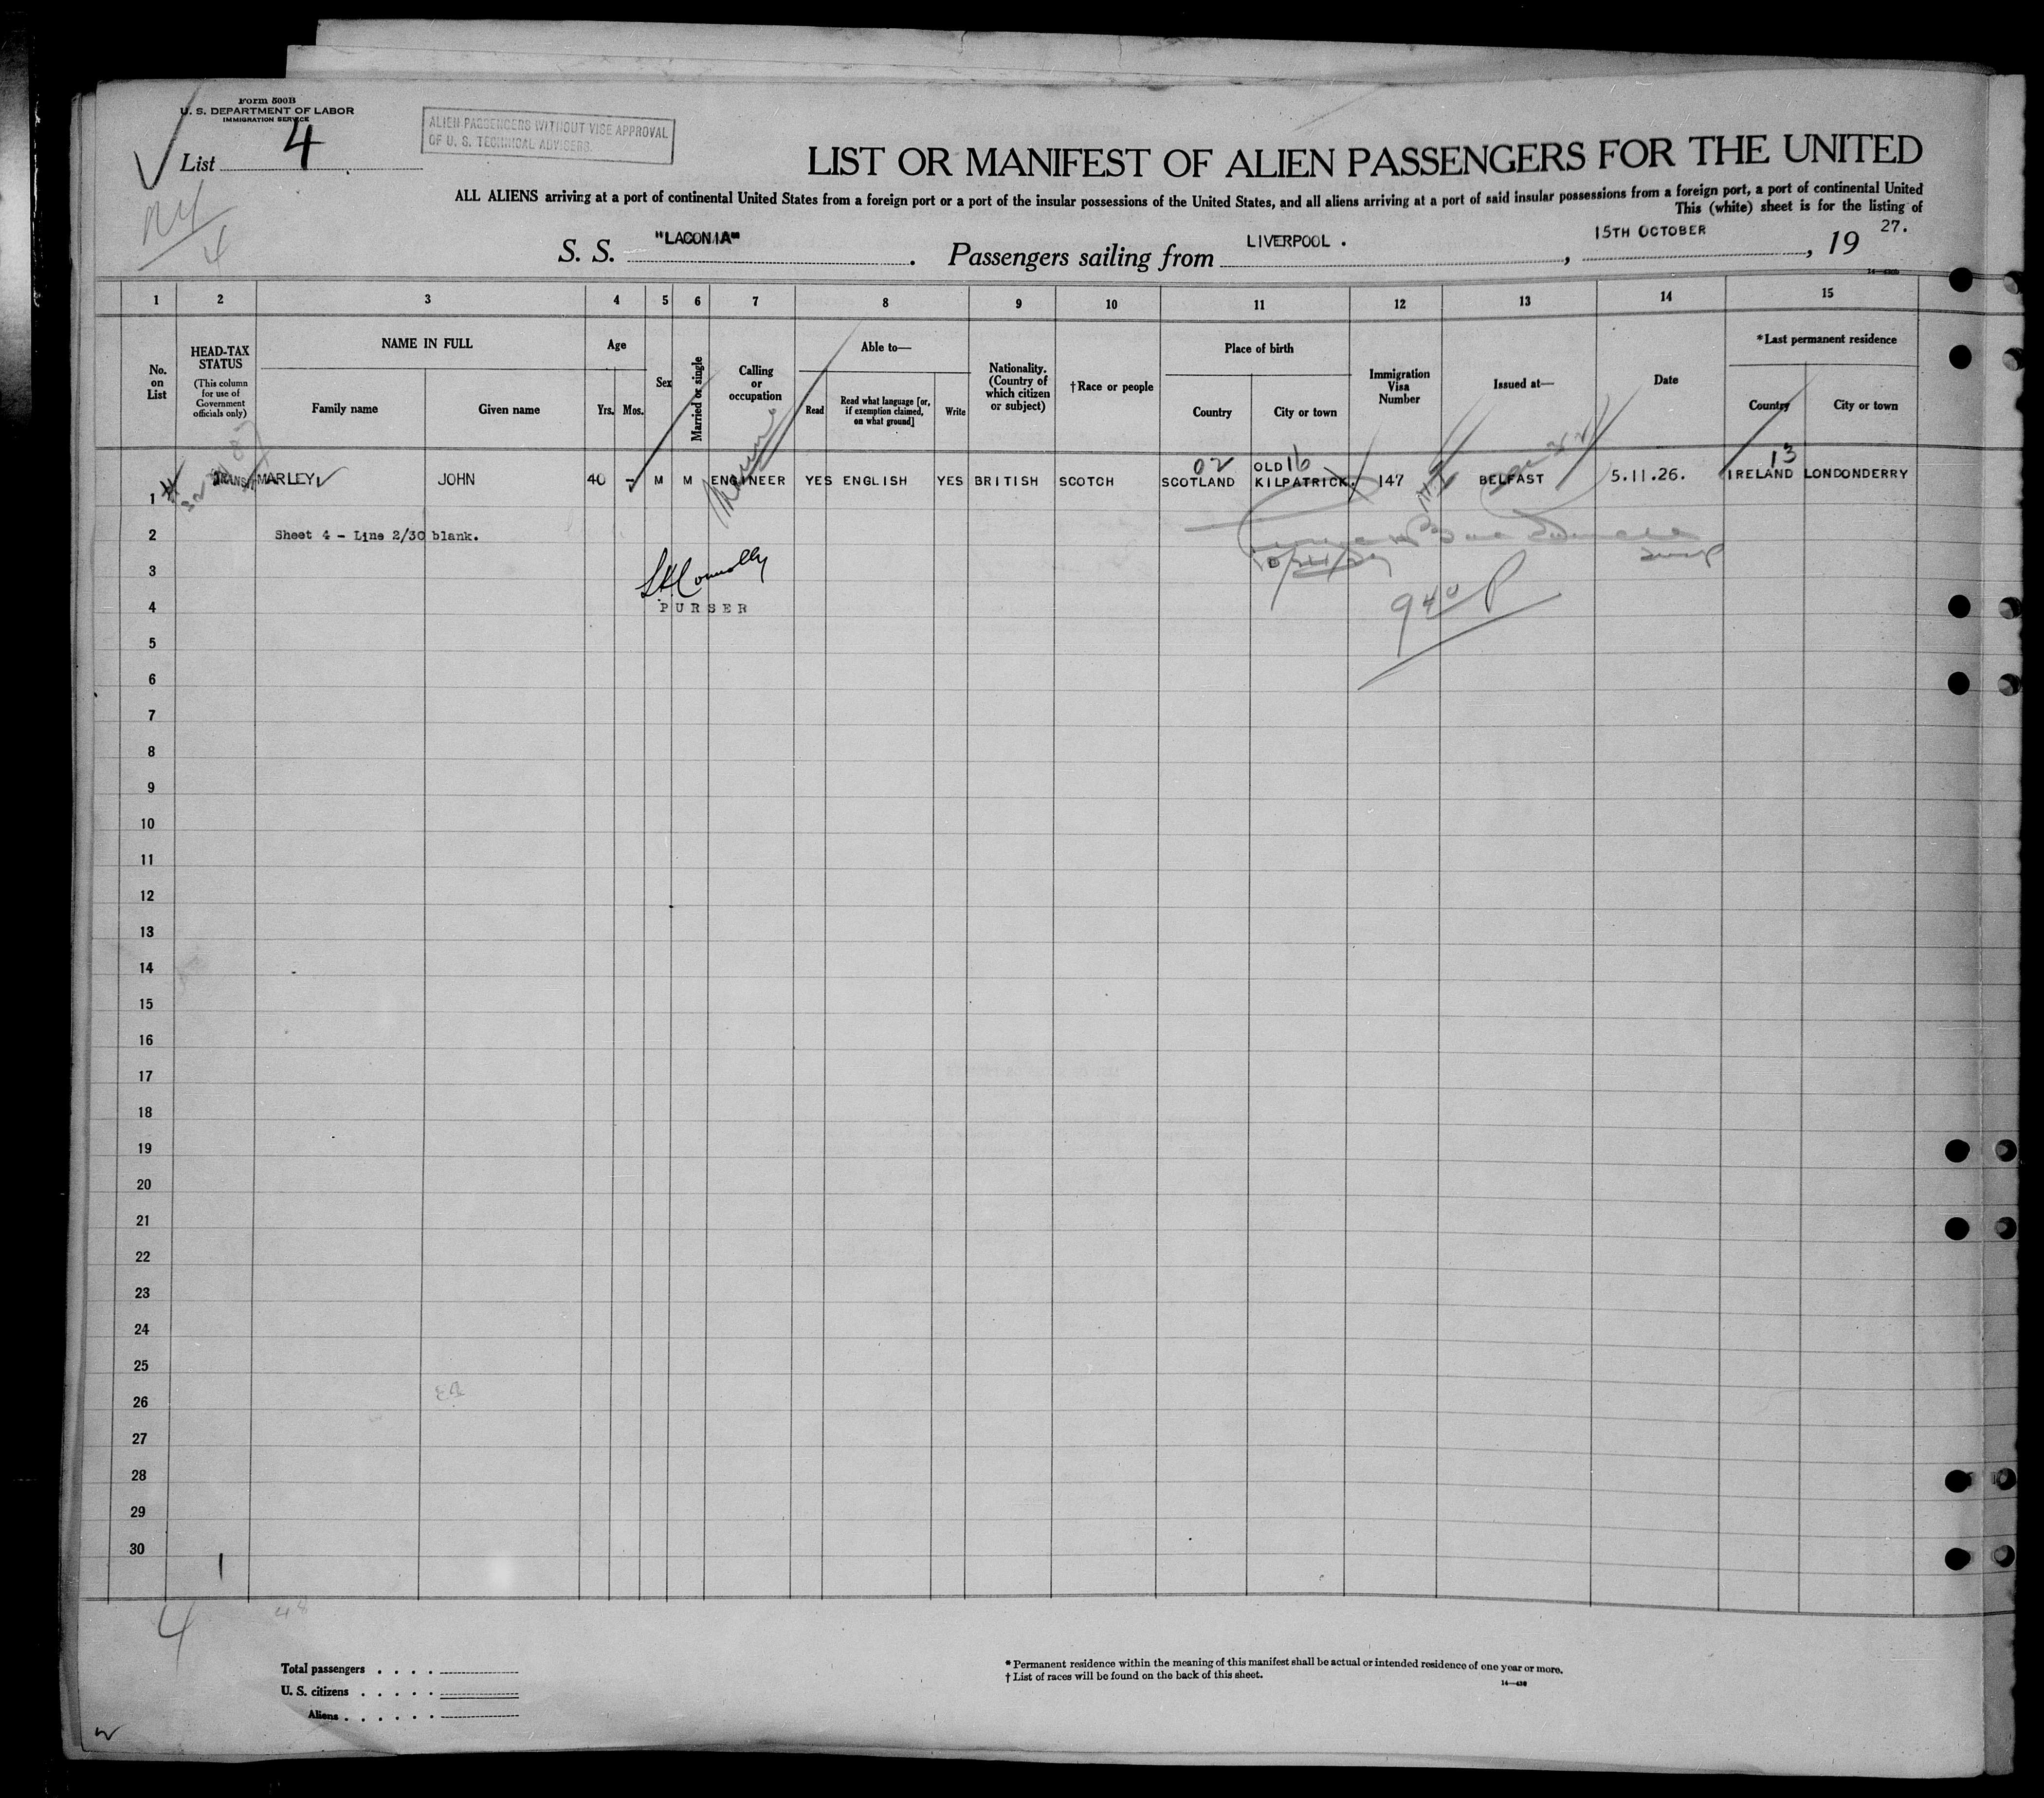 Form 500B
U. S. DEPARTMENT OF LABOR
IMMIGRATION SERVICE
List 4
ALIEN PASSENGERS WITHOUT VISE APPROVAL
OF U. S. TECHNICAL ADVISERS.
LIST OR MANIFEST OF ALIEN PASSENGERS FOR THE UNITED
ALL ALIENS arriving at a port of continental United States from a foreign port or a port of the insular possessions of the United States, and all aliens arriving at a port of said insular possessions from a foreign port, a port of continental United
This (white) sheet is for the listing of
S. S. "LACONIA". Passengers sailing from LIVERPOOL . , 15TH OCTOBER , 19 27.
1 2 3 4 5 6 7 8 9 10 11 12 13 14 15
No. on List
HEAD-TAX STATUS
(This column for use of Government officials only)
NAME IN FULL
Family name
Given name
Age
Yrs. Mos.
Sex
Married or single
Calling or occupation
Able to—
Read
Read what language [or, if exemption claimed, on what ground]
Write
Nationality. (Country of which citizen or subject)
†Race or people
Place of birth
Country
City or town
Immigration Visa Number
Issued at—
Date
*Last permanent residence
Country
City or town
02 16 13
1 TRANSIT MARLEY JOHN 40 - M M ENGINEER YES ENGLISH YES BRITISH SCOTCH SCOTLAND OLD KILPATRICK. 147 BELFAST 5.11.26. IRELAND LONDONDERRY
2 Sheet 4 - Line 2/30 blank.
3
4 PURSER
940 P
5
6
7
8
9
10
11
12
13
14
15
16
17
18
19
20
21
22
23
24
25
26
27
28
29
30
1
4 48
Total passengers . . . .
U. S. citizens . . . . .
Aliens . . . . . .
* Permanent residence within the meaning of this manifest shall be actual or intended residence of one year or more.
† List of races will be found on the back of this sheet.